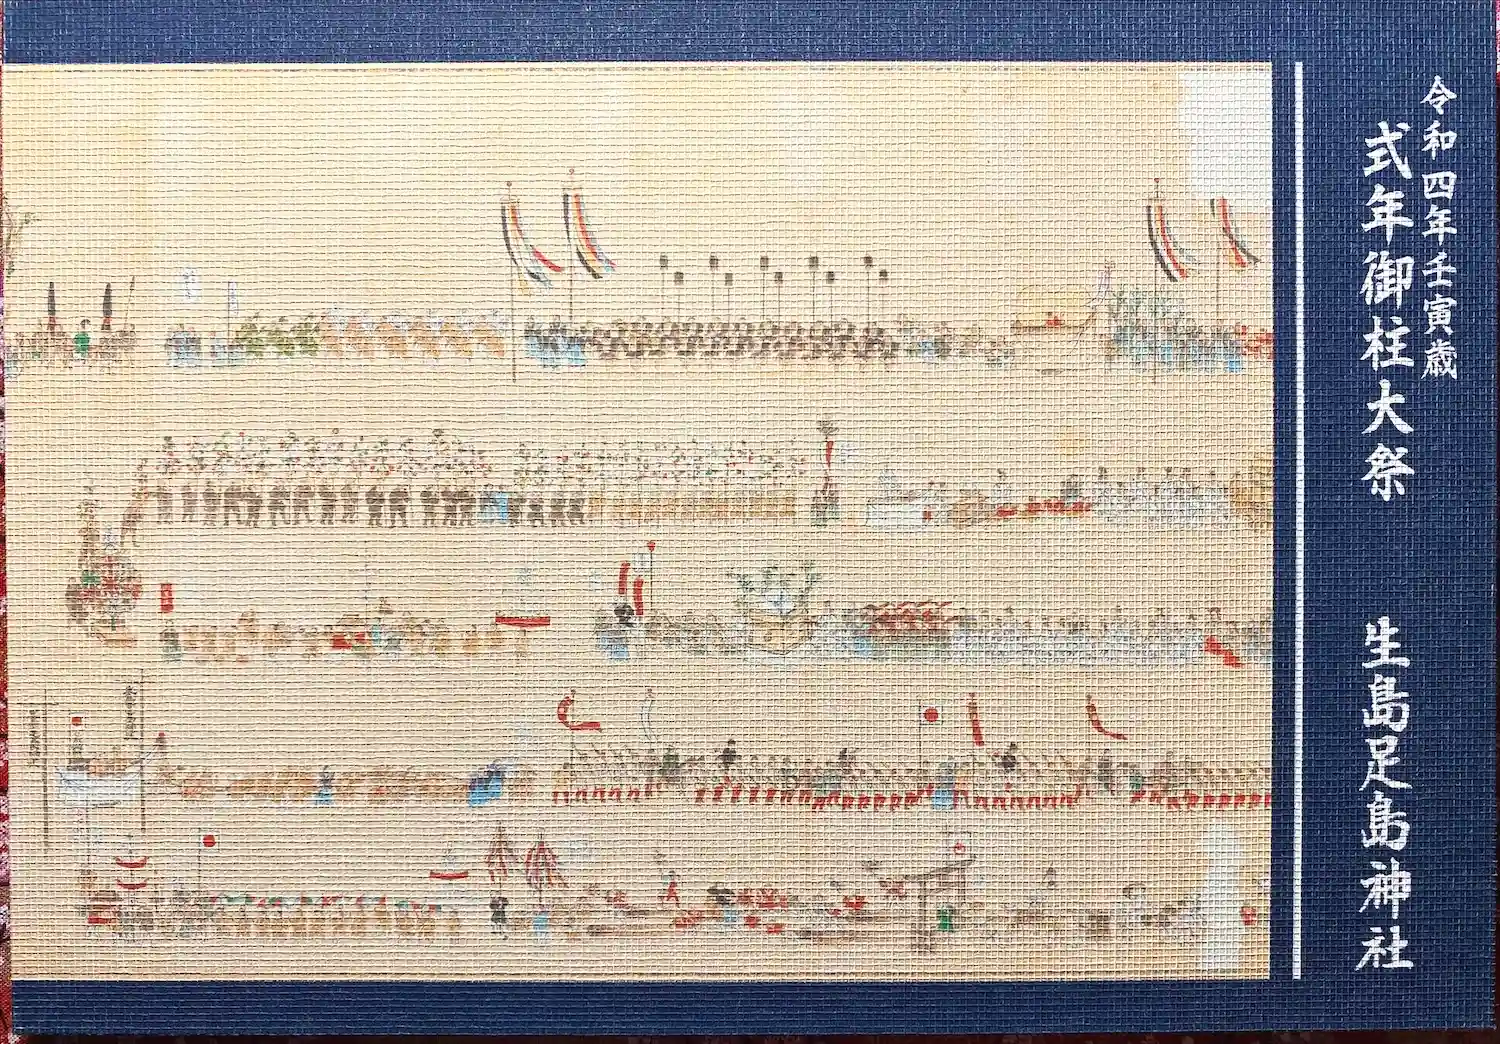 令和四年壬寅歳
式年御柱大祭　生島足島神社